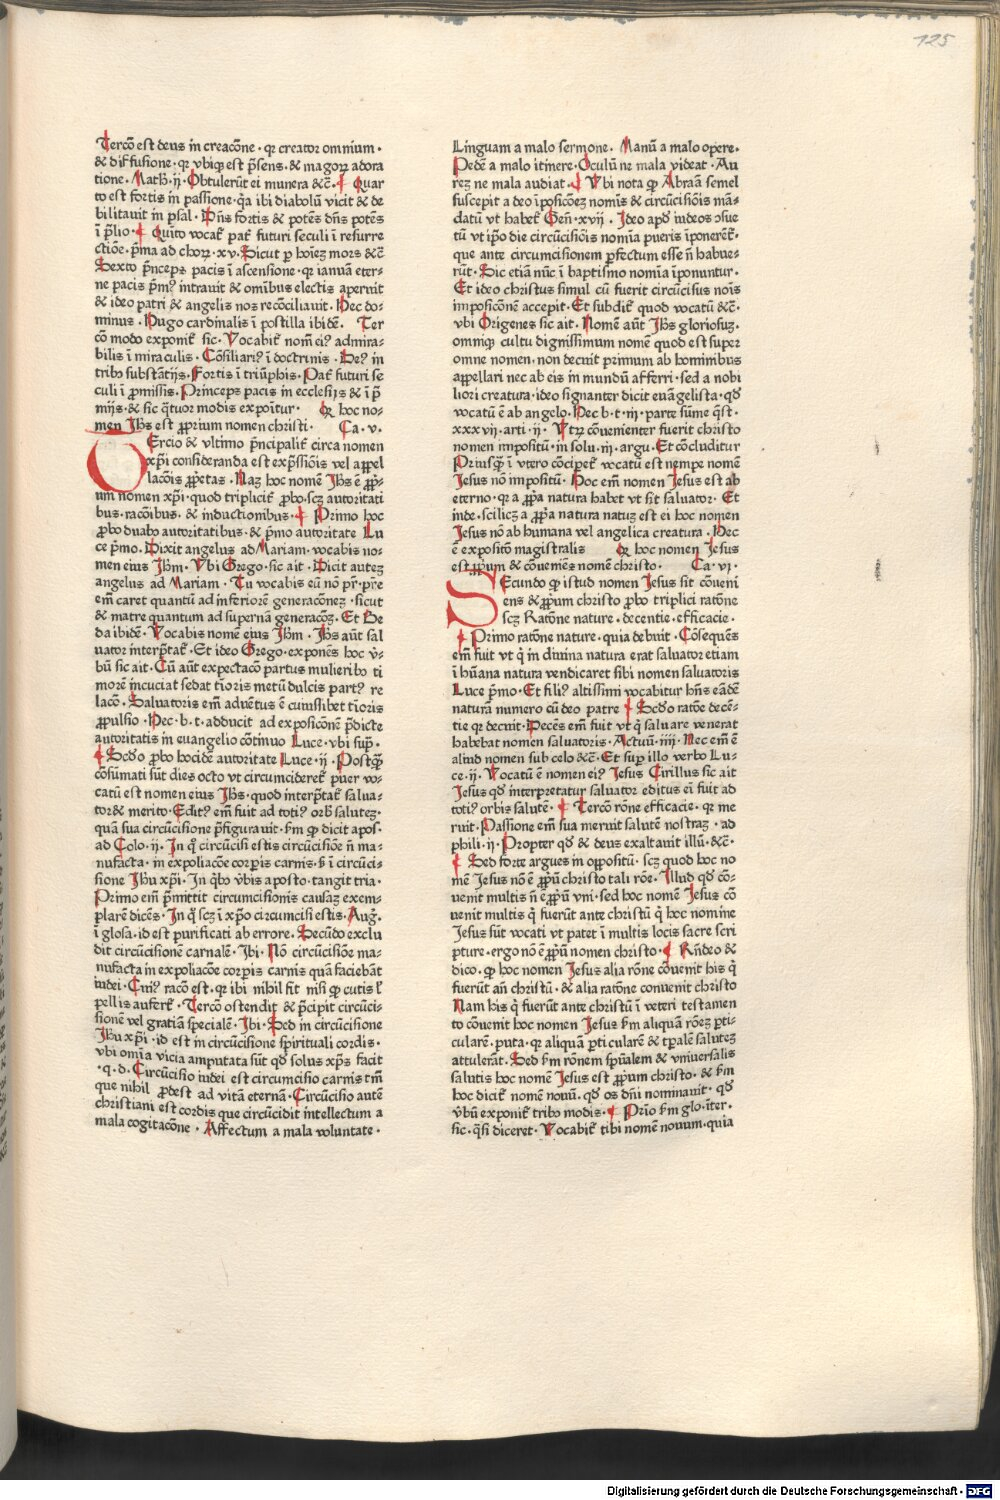 125
Tercō est deus in creacōne · qꝛ creator omnium ·
& diffusione · qꝛ vbiqꝫ est p̄sens · & magoꝝ adora
tione · Math · ij · Obtulerūt ei munera &c̄ · ¶ Quar
to est fortis in passione · q̄a ibi diabolū vicit & de
bilitauit in psal · Dn̄s fortis & potēs dn̄s potēs
ī p̄lio · ¶ Quīto vocaꝶ paꝶ futuri seculi ī resurre
ctiōe · p̄ma ad choꝝ · xv · Sicut p hoīeꝫ mors &c̄
Sexto p̄nceps pacis ī ascensione · qꝛ ianuā eter-
ne pacis p̄mꝰ intrauit & omībus electis aperuit
& ideo patri & angelis nos recōciliauit · Hec do-
minus · Hugo cardinalis ī postilla ibidē · Ter
cō modo exponiꝶ sic · Vocabiꝶ nomē eiꝰ admira-
bilis ī miraculis · Cōsiliariꝰ ī doctrinis · Deꝰ in
tribꝫ substātijs · Fortis ī triūphis · Paꝶ futuri se
culi ī promissis · Princeps pacis in ecclesijs & ī p̄
mijs · & sic q̄tuor modis exponītur · Qꝛ hoc no-
men Jhs̄ est ꝓprium nomen christi · Ca · v ·
Tercio & vltimo p̄ncipaliꝶ circa nomen
xp̄i consideranda est exp̄ssiōis vel appel
lacōis ꝓp̄etas · Naꝫ hoc nomē Jhs̄ ē ꝓpri-
um nomen xp̄i · quod tripliciꝶ ꝓbo · scꝫ autoritati
bus · racōībus · & inductionibus · ¶ Primo hoc
ꝓbo duabꝫ autoritatibus · & p̄mo autoritate Lu
ce p̄mo · Dixit angelus ad Mariam · vocabis no-
men eius Jhm̄ · Vbi Grego · sic ait · Dicit auteꝫ
angelus ad Mariam · Tu vocabis eū nō pr̄ · pr̄e
em̄ caret quantū ad inferiorē generacōneꝫ · sicut
& matre quantum ad supernā generacōꝫ · Et Be
da ibidē · Vocabis nomē eius Jhm̄ · Jhs̄ aūt sal
uator interp̄taꝶ · Et ideo Grego · exponēs hoc v̄-
bū sic ait · Cū aūt expectacō partus mulieribꝫ ti
morē incuciat sedat tīoris metū dulcis partꝰ re
lacō · Saluatoris em̄ aduētus ē cuiuslibet tīoris
ꝓpulsio · Hec · b · t · adducit ad exposicōnē p̄dicte
autoritatis in euangelio cōtinuo Luce · vbi sup̄ ·
¶ Scd̄o ꝓbo hocidē autoritate Luce · ij · Postqꝫ
cōsūmati sūt dies octo vt circumcidereꝶ puer vo-
catū est nomen eius Jhs̄ · quod interp̄taꝶ salua-
tor & merito · Editꝰ em̄ fuit ad totiꝰ orbꝭ saluteꝫ ·
quā sua circūcisione p̄figurauit · ẜm qꝫ dicit apos ·
ad Colo · ij · In q̄ circūcisi estis circūcisiōe n̄ ma-
nufacta · in expoliacōe corꝑis carnis · ẜ ī circūci-
sione Jhū xp̄i · In qͥbꝫ v̄bis aposto · tangit tria ·
Primo em̄ p̄mittit circumcisionis causaꝫ exem-
plarē dicēs · In q̄ scꝫ ī xp̄o circumcisi estis · Aug̉ ·
ī glosa · id est purificati ab errore · Secūdo exclu
dit circūcisionē carnalē · Ibi · Nō circūcisiōe ma-
nufacta in expoliacōe corꝑis carnis quā faciebāt
iudei · Cuiꝰ racō est · qꝛ ibi nihil fit nisi qꝫ cutis ł
pellis auferꝶ · Tercō ostendit & p̄cipit circūci-
sionē vel gratiā specialē · Ibi · Sed in circūcisione
Jhū xp̄i · id est in circūcisione spirituali cordis ·
vbi omīa vicia amputata sūt qd̄ solus xp̄s facit
· q · d · Circūcisio iudei est circumcisio carnis tm̄
que nihil ꝓdest ad vitā eternā · Circūcisio autē
christiani est cordis que circūcidit intellectum a
mala cogitacōne · Affectum a mala voluntate ·
Linguam a malo sermone · Manū a malo opere ·
Pedē a malo itinere · Oculū ne mala videat · Au
reꝫ ne mala audiat · ¶ Vbi nota qꝫ Abraā semel
suscepit a deo īposicōeꝫ nomīs & circūcisiōis mā-
datū vt habeꝶ Gen̄ · xvij · Ideo apd̄ iudeos ꝯsue
tū vt ipo die circūcisiōis nomīa pueris īponereꝶ ·
que ante circumcisionem ꝑfectum esse n̄ habue-
rūt · Sic etiā nūc ī baptismo nomīa īponuntur ·
Et ideo christus simul cū fuerit circūcisus noīs
imposicōnē accepit · Et subdiꝶ quod vocatū &c̄ ·
vbi Origenes sic ait · Nomē aūt Jhs̄ gloriosuꝫ ·
omniqꝫ cultu dignissimum nomē quod est super
omne nomen · non decuit primum ab hominibus
appellari nec ab eis in mundū afferri · sed a nobi
liori creatura · ideo signanter dicit euāgelista · qd̄
vocatū ē ab angelo · Hec · b · t · iij · parte sūme q̄st ·
xxxvij · arti · ij · Vtꝝ cōuenienter fuerit christo
nomen impositū · in solu · iij · argu · Et cōcluditur
Priusqꝫ ī vtero cōcipeꝶ vocatū est nempe nomē
Jesus nō impositū · Hoc em̄ nomen Jesus est ab
eterno · qꝛ a ꝓp̄a natura habet vt sit saluator · Et
inde · scilicꝫ a ꝓp̄a natura natuꝫ est ei hoc nomen
Jesus nō ab humana vel angelica creatura · Hec
ē expositō magistralis Qꝛ hoc nomen Jesus
est ꝓp̄um & cōueniēs nomē christo · Ca · vj ·
Secundo qꝫ istud nomen Jesus sit cōueni
ens & ꝓp̄um christo ꝓbo triplici ratōne
scꝫ Ratōne nature · decentie · efficacie ·
¶ Primo ratōne nature · quia debuit · Cōsequēs
em̄ fuit vt q̄ in diuina natura erat saluator etiam
ī hūana natura vendicaret sibi nomen saluatoris
Luce p̄mo · Et filiꝰ altissimi vocabitur hn̄s eādē
naturā numero cū deo patre ¶ Scd̄o ratōe decē-
tie qꝛ decuit · Decēs em̄ fuit vt q̄ saluare venerat
habebat nomen saluatoris · Actuū · iiij · Nec em̄ ē
aliud nomen sub celo &c̄ · Et sup illo verbo Lu-
ce · ij · Vocatū ē nomen eiꝰ Jesus Cirillus sic ait
Jesus qd̄ interpretatur saluator editus eī fuit ad
totiꝰ orbis salutē · ¶ Tercō rōne efficacie · qꝛ me
ruit · Passione em̄ sua meruit salutē nostraꝫ · ad
phili · ij · Propter qd̄ & deus exaltauit illū · &c̄ ·
¶ Sed forte argues in oppositū · scꝫ quod hoc no
mē Jesus nō ē ꝓp̄ū christo tali rōe · Illud qd̄ cō-
uenit multis n̄ ē ꝓp̄ū vni · sed hoc nomē Jesus cō
uenit multis q̄ fuerūt ante christū q̄ hoc nomine
Jesus sūt vocati vt patet ī multis locis sacre scri
pture · ergo nō ē ꝓp̄ū nomen christo · ¶ Rn̄deo &
dico · qꝫ hoc nomen Jesus alia rōne cōuenit his q̄
fuerūt an̄ christū · & alia ratōne conuenit christo
Nam his q̄ fuerūt ante christū ī veteri testamen
to cōuenit hoc nomen Jesus ẜm aliquā rōeꝫ ꝑti-
cularē · puta · qꝛ aliquā ꝑticularē & tp̄alē saluteꝫ
attulerāt · Sed ẜm rōnem sp̄ualem & vniuersalis
salutis hoc nomē Jesus est ꝓp̄um christo · & ẜm
hoc diciꝶ nomē nouū · qd̄ os dn̄i nominauit · qd̄
v̄bū exponiꝶ tribꝫ modis · ¶ Prīo ẜm glo · iter ·
sic · q̄si diceret · Vocabiꝶ tibi nomē nouum · quia
Digitalisierung gefördert durch die Deutsche Forschungsgemeinschaft · DFG